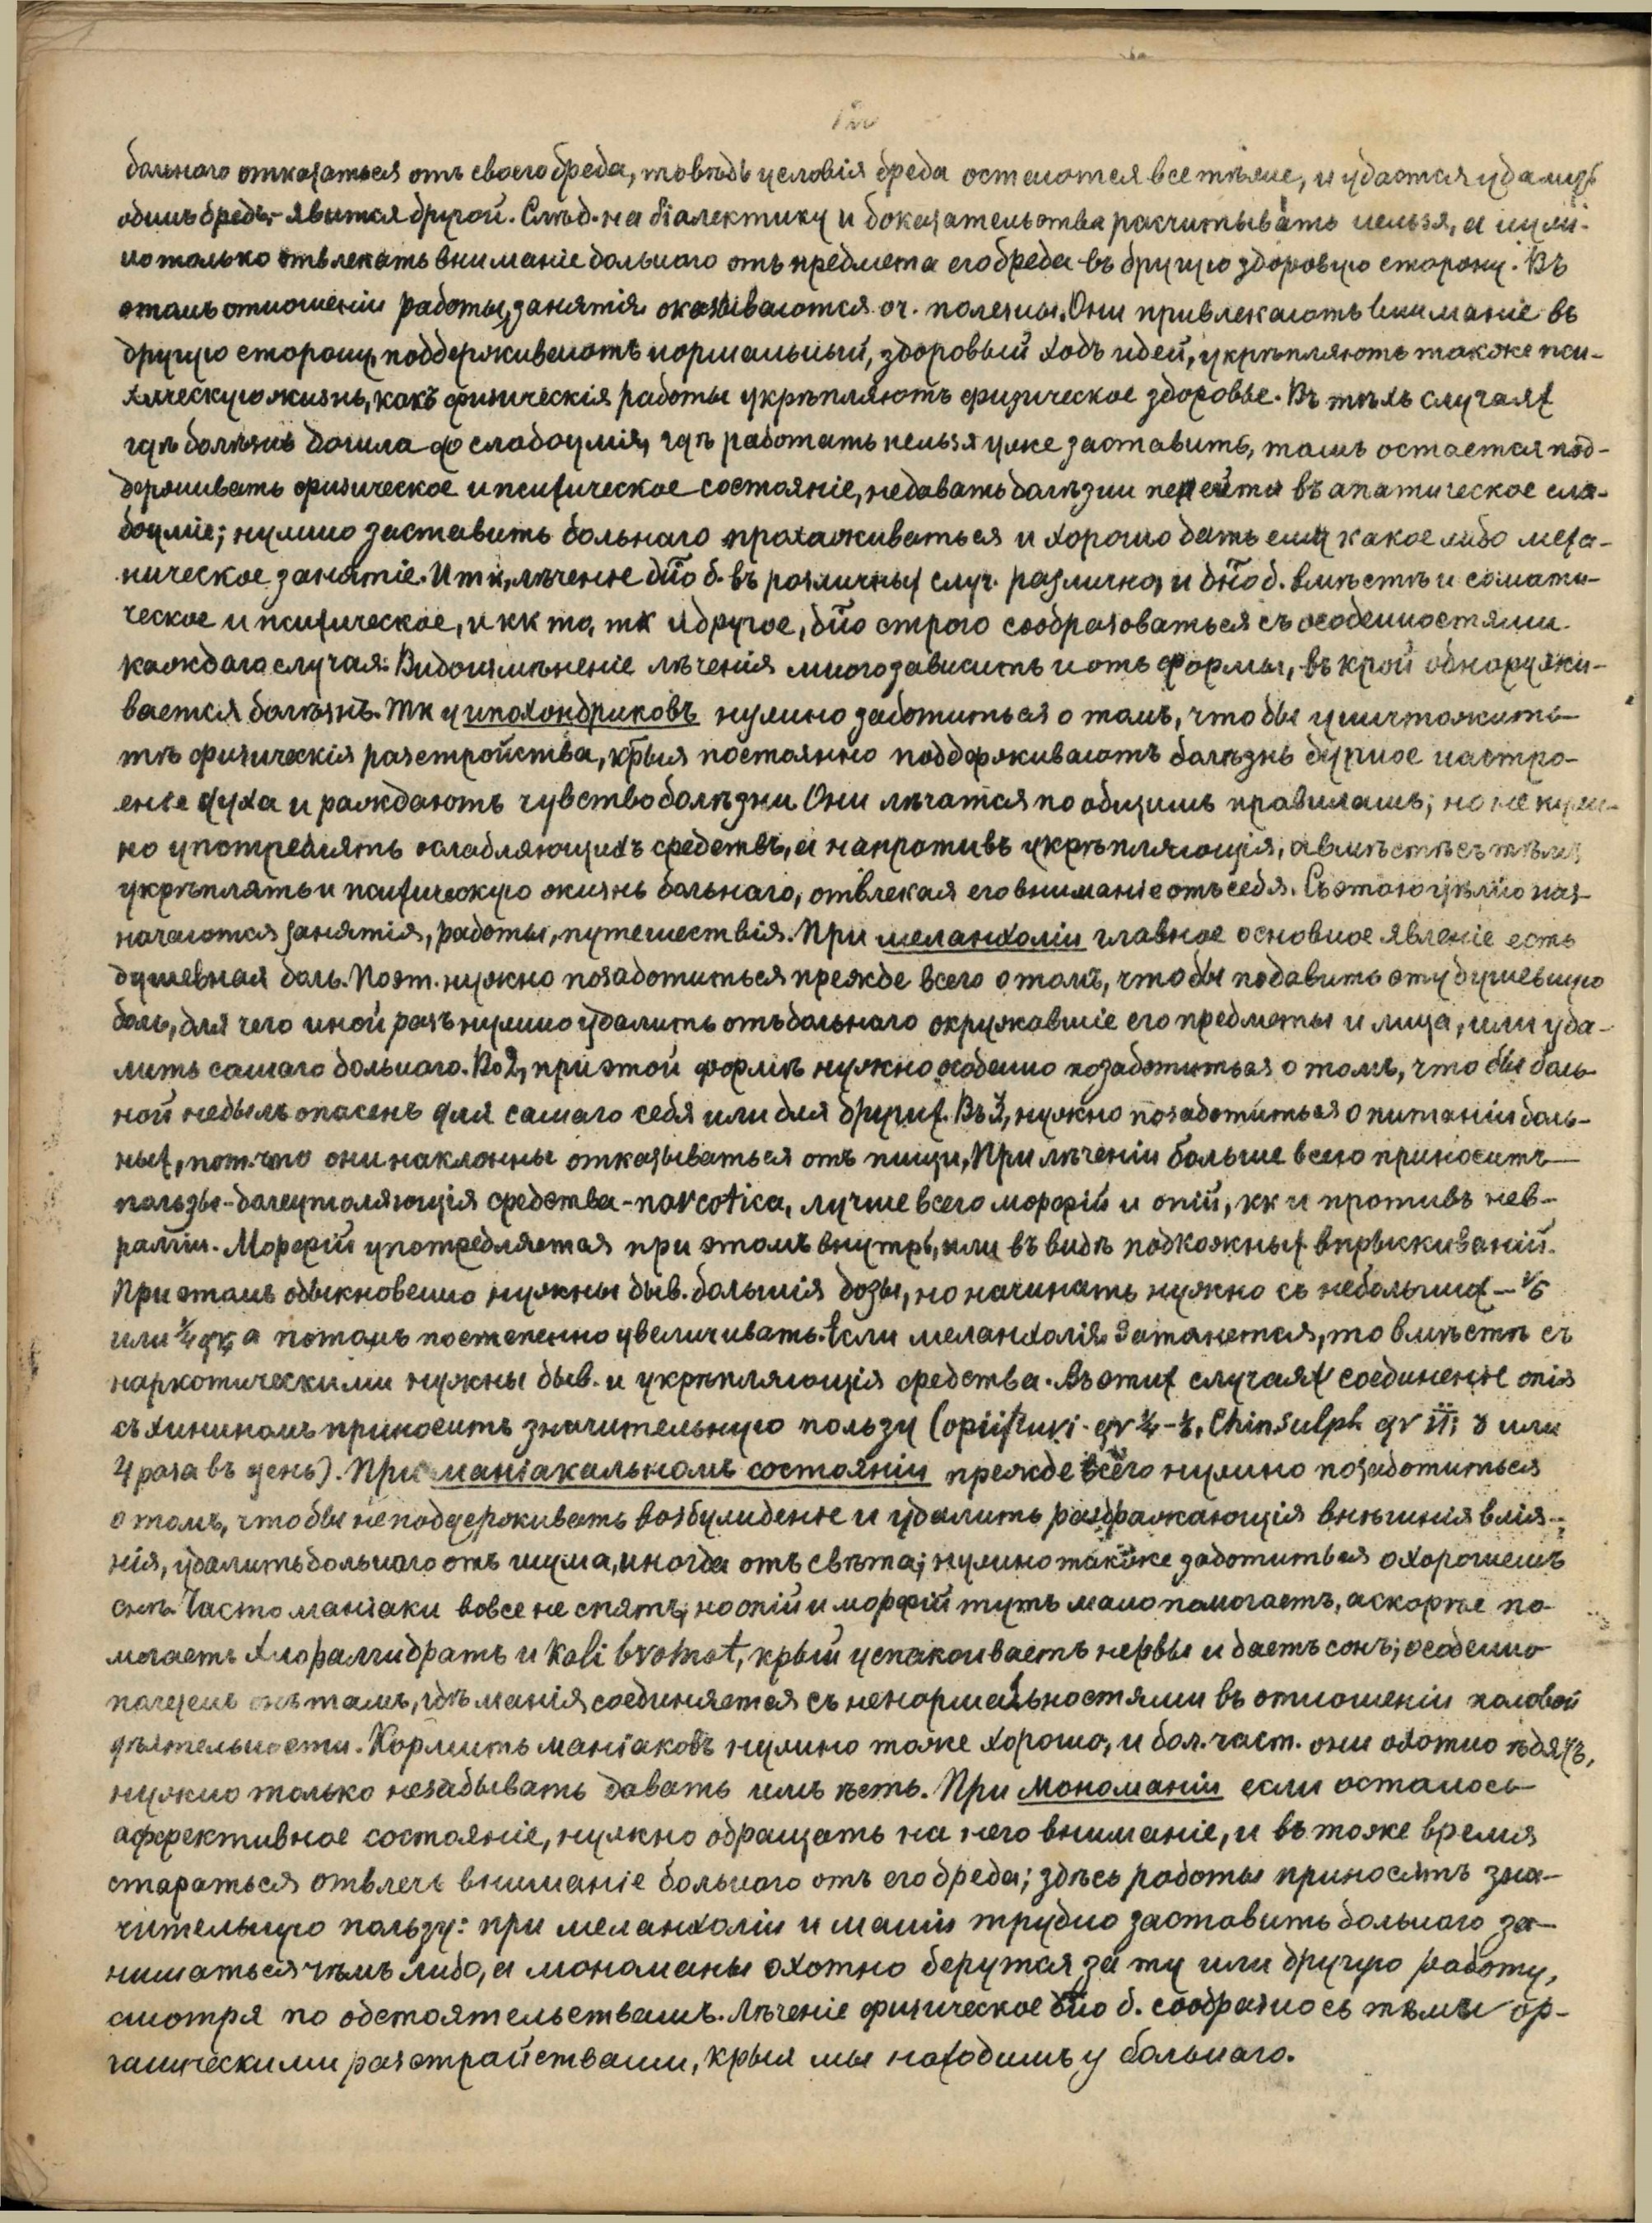 больного отказаться отъ своего бреда, то вѣдь условія бреда остаются все тѣже, и удастся удалить
одинъ бредъ - явится другой. Слѣд. на діалектику и доказательства расчитывать нельзя, а нуж-
но только отвлекать вниманіе больного отъ предмета его бреда въ другую здоровую сторону. Въ
этомъ отношеніи работы, занятія оказываются оч. полезны. Они привлекаютъ вниманіе въ
другую сторону, поддерживаютъ нормальный, здоровый ходъ идей, укрѣпляютъ также пси-
хическую жизнь, какъ физическія работы укрѣпляютъ физическое здоровье. Въ тѣхъ случаяχ
гдѣ болѣзнь дошла до слабоумія, гдѣ работать нельзя уже заставить, тамъ остается под-
держивать физическое и психическое состояніе, не давать болѣзни перейти въ апатическое сла-
боуміе; нужно заставить больнаго прохаживаться и хорошо дать ему какое либо меχа-
ническое занятіе. Итк, лѣченіе дно б. въ различныχ случ. различно, и дно б. вмѣстѣ и сомати-
ческое и психическое, и кк то, тк и другое, дно строго сообразоваться съ особенностями
каждаго случая. Видоизмѣненіе лѣченія много зависитъ и отъ формы, въ крой обнаружи-
вается болѣзнь. Тк у ипохондриковъ нужно заботиться о томъ, что бы уничтожить
тѣ физическія разстройства, крыя постоянно поддерживаютъ болѣзнь дурное настро-
еніе духа и рождаютъ чувство болѣзни. Они лѣчатся по общимъ правиламъ; но не нуж-
но употреблять ослабляющихъ средствъ, а напротивъ укрѣпляющія, а вмѣстѣ съ тѣмъ
укрѣплять и психическую жизнь больнаго, отвлекая его вниманіе отъ себя. Съ этою цѣлію наз-
начаются занятія, работы, путешествія. При меланхоліи главное основное явленіе есть
душевная боль. Поэт. нужно позаботиться прежде всего о томъ, что бы подавить эту душевную
боль, для чего иной разъ нужно удалить отъ больнаго окружавшіе его предметы и лица, или уда-
лить самаго больного. Во 2, при этой формѣ нужно особенно позаботиться о томъ, что бы боль-
ной не былъ опасенъ для самаго себя или для другиχ. Въ 3, нужно позаботиться о питаніи боль-
ныχ, пот. что они наклонны отказываться отъ пищи. При лѣченіи больше всего приноситъ
пользы - болеутоляющія средства - narcotica, лучше всего морфій и опій, кк и противъ нев-
ралгіи. Морфій употребляется при этомъ внутрь, или въ видѣ подкожныχ впрыскиваній.
При этомъ обыкновенно нужны быв. большія дозы, но начинать нужно съ небольшиχ - 1/6
или 1/4 gr, а потомъ постепенно увеличивать. Если меланхолія затянется, то вмѣстѣ съ
наркотическими нужны быв. и укрѣпляющія средства. Въ этиχ случаяχ соединеніе опія
съ хининомъ приноситъ значительную пользу (opii puri gr 1/4 - 1/2, Chin sulph gr iii 3 или
4 раза въ день). При маніакальномъ состояніи прежде всего нужно позаботиться
о томъ, что бы не поддерживать возбужденіе и удалить раздражающія внѣшнія влія-
нія, удалить больнаго отъ шума, иногда отъ свѣта; нужно также заботиться о хорошемъ
снѣ. Часто маніаки вовсе не спятъ; но опій и морфій тутъ мало помогаетъ, а скорѣе по-
могаетъ хлоралгидратъ и Kali bromat, крый успокоиваетъ нервы и даетъ сонъ; особенно
полезенъ онъ тамъ, гдѣ манія соединяется съ ненормальностями въ отношеніи половой
дѣятельности. Кормить маніаковъ нужно тоже хорошо, и бол. част. они охотно ѣдятъ,
нужно только не забывать давать имъ ѣсть. При мономаніи если осталось
афективное состояніе, нужно обращать на него вниманіе, и въ тоже время
стараться отвлечь вниманіе больнаго отъ его бреда; здѣсь работы приносятъ зна-
чительную пользу: при меланхоліи и маніи трудно заставить больнаго за-
ниматься чѣмъ либо, а мономаны охотно берутся за ту или другую работу,
смотря по обстоятельствамъ. Лѣченіе физическое дно б. сообразно съ тѣми ор-
ганическими разстройствами, крыя мы находимъ у больнаго.